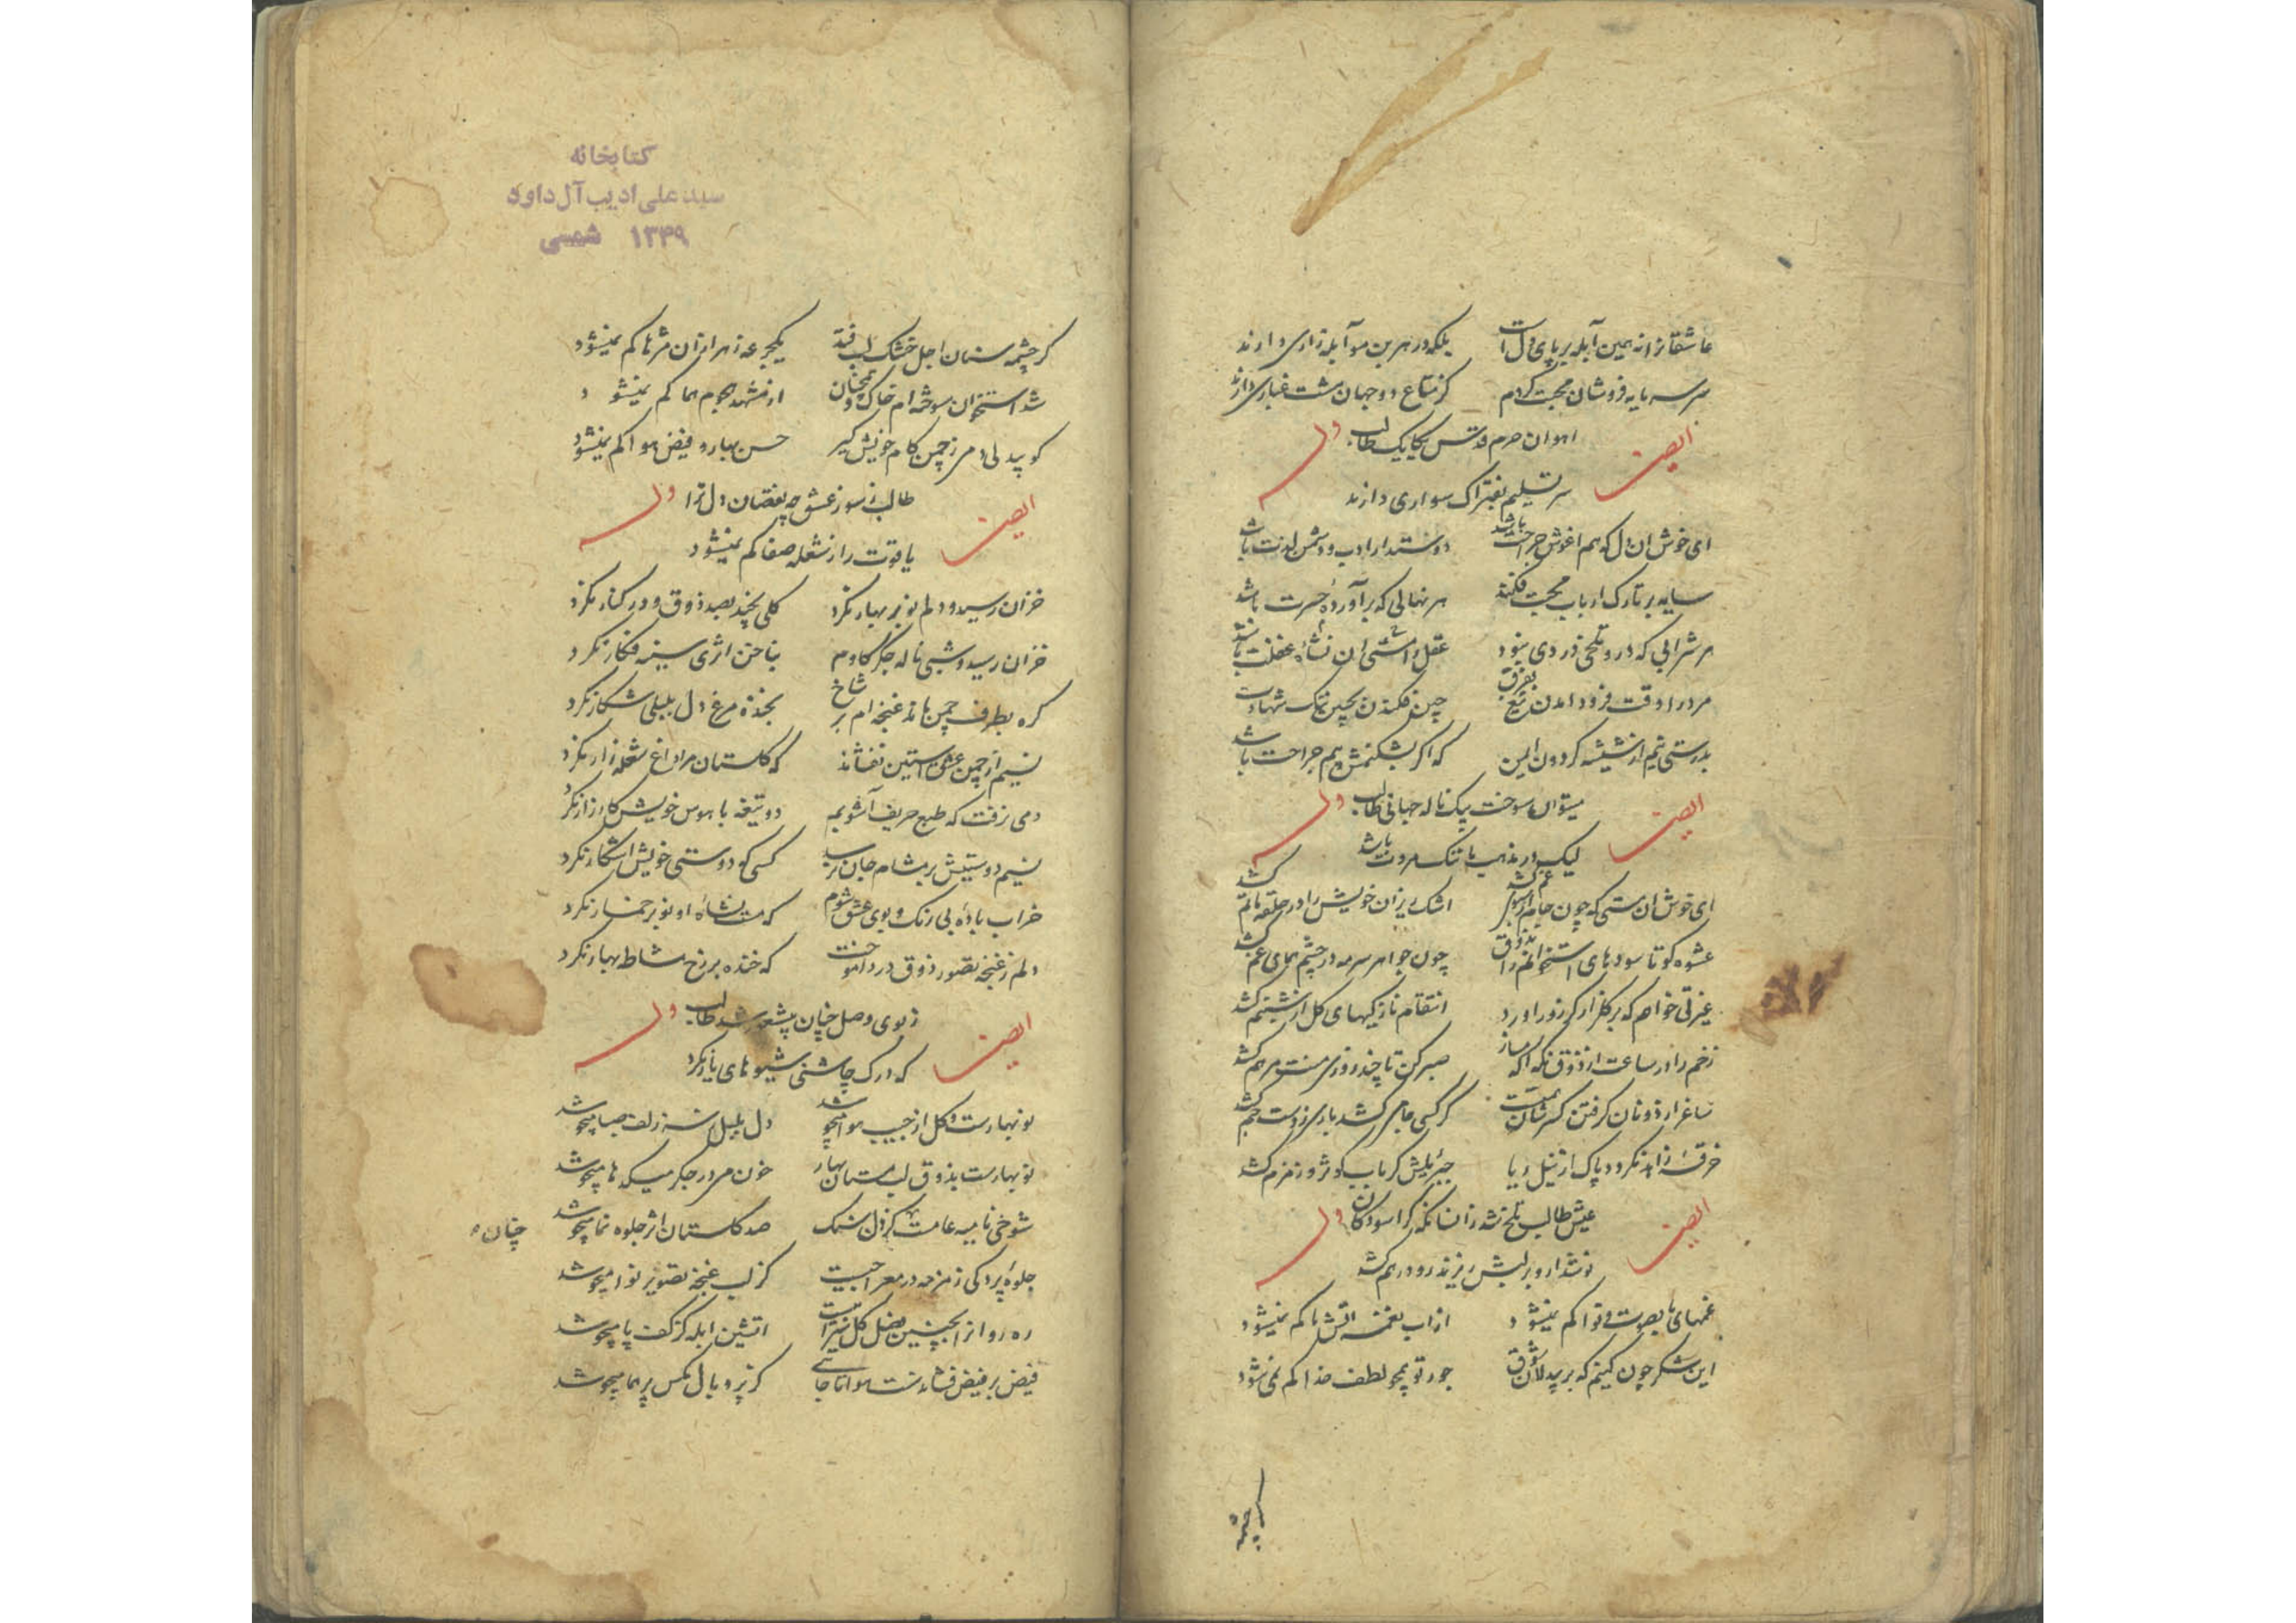 عاشقانرا نه همین آبله بر پای دل است بلکه در هر بن مو آبله زاری دارند
سر سرمایه فروشان محبت کردم کز متاع دو جهان مشت غباری دارند
اهوان حرم قدس یکایک طالب
ایضا وله
سر تسلیم بفتراک سواری دارند
ای خوش ان دل که هم اغوش جراحت باشد دوستدار ادب و دشمن لذت باشد
سایه بر تارک ارباب محبت فکند هر نهالی که برآوردهٔ حسرت باشد
هر شرابی که درو تلخی دردی نبود عقل را مستی ان نشاء غفلت باشد
مرد را وقت فرود امدن تیغ بفرق چین فکندن بجبین ننک شهادت باشد
بدرستی نیم از شیشه کردون ایمن که اکر بشکنمش بیم جراحت باشد
میتوان سوخت بیک ناله جهانی طالب
ایضا وله
لیک در مذهب ما ننک مروت باشد
ای خوش ان مستی که چون جام از سبوی غم کشد اشک ریزان خویش را در حلقه ماتم کشد
عشوه کو تا سودهای استخوانم را بذوق چون جواهر سرمه در چشم همای غم کشد
غیرتی خواهم که بر کلزار کر زور اورد انتقام نازکیهای کل از شبنم کشد
زخم را در ساعت از ذوق نمک اکه مساز صبر کن تا چند روزی منت مرهم کشد
ساغر از دونان کرفتن کسر شان همت کر کسی جامی کشد باری ز دست جم کشد
خرقهٔ زاهد نکردد پاک از نیل ریا جبرئیلش کر باب کوثر و زمزم کشد
عیش طالب تلخ شد زانسانکه کر اسودکان
ایضا وله
نوشدارو بر لبش ریزند رو در هم کشد
غمهای ما بصوت و نوا کم نمیشود از اب نغمه اتش ما کم نمیشود
این شکر چون کنیم که بر بیدلان شوق جور تو همچو لطف خدا کم نمی شود
کر چشمه
کتابخانه
سید علی ادیب آل داود
۱۳۴۹ شمسی
کر چشمه سنان اجل خشک لب فتد یکجرعه زهر ازان مژها کم نمیشود
شد استخوان سوخته ام خاک و همچنان از مشهدم هجوم هما کم نمیشود
کو بیدلی دمی ز چمن کام خویش کیر حسن بهار و فیض هوا کم نمیشود
طالب ز سوز عشق چه نقصان دل ترا
ایضا وله
یاقوت را ز شعله صفا کم نمیشود
خزان رسید و دلم نوبر بهار نکرد کلی نچید بصد ذوق و در کنار نکرد
خزان رسید و شبی ناله جکر کاوم بناخن اثری سینه فکار نکرد
کره بطرف چمن ماند غنچه ام بر شاخ بخنده مرغ دل بلبلی شکار نکرد
نسیم از چمن عشق استین نفشاند که کلستان مرا داغ شعله زار نکرد
دمی نرفت که طبع حریف آشوبم دو تیغه با هوس خویش کارزار نکرد
نسیم دوستیش بر مشام جان نرسید کسی کو دوستی خویش اشکار نکرد
خراب بادهٔ بی رنک و بوی عشق شوم که مست نشاهٔ او نوبر خمار نکرد
دلم ز غنچه تصویر ذوق درد اموخت که خنده بر رخ مشاطه بهار نکرد
ز بوی وصل چنان بیشعور شد طالب
ایضا وله
که درک چاشنی شیوهای یار نکرد
نو بهارست و کل از جیب هوا میجوشد دل بلبل ز سر زلف صبا میجوشد
نو بهارست بذوق لب مستان بهار خون می در جکر میکدها میجوشد
شوخی نامیه عامست کز دل سنک صد کلستان اثر جلوه نما میجوشد
جلوهٔ پردکی زمزمه در معراجیست کز لب غنچه تصویر نوا میجوشد
ره روانرا بچنین فصل کل سیرابیست اتشین ابله کز کف پا میجوشد
فیض بر فیض فشاندست هوا تا جائی کز پر و بال مکس پر هما میجوشد
چنان